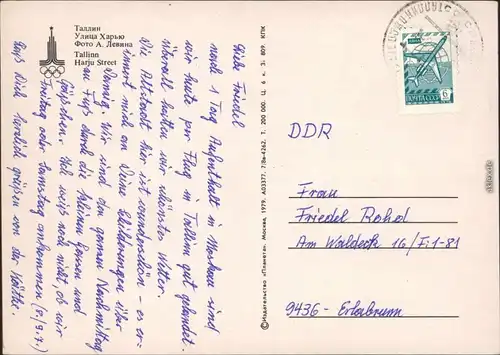 Таллин
Улица Харью
Фото А. Левина
Tallinn
Harju Street
Liebe Friedel
nach 1 Tag Aufenthalt in Moskau sind
wir heute per Flug in Tallinn gut gelandet.
Überall hatten wir schönstes Wetter.
Die Altstadt hier ist wunderschön - es er-
innert mich an Deine Schilderungen über
Danzig. Wir sind den ganzen Nachmittag
zu Fuß durch die kleinen Gassen und
Gäßchen. Ich weiß noch nicht, ob wir
Freitag oder Samstag ankommen
Laß Dich herzlich grüßen von der
© Издательство «Планета». Москва, 1979. А03377. 7/Вм-4262. Т. 200 000. Ц. 6 к. З. 809. КПК
ПОЧТА СССР
6
DDR
Frau
Friedel Rohd
Am Waldeck 16/F:1-81
9436 - Erlabrunn